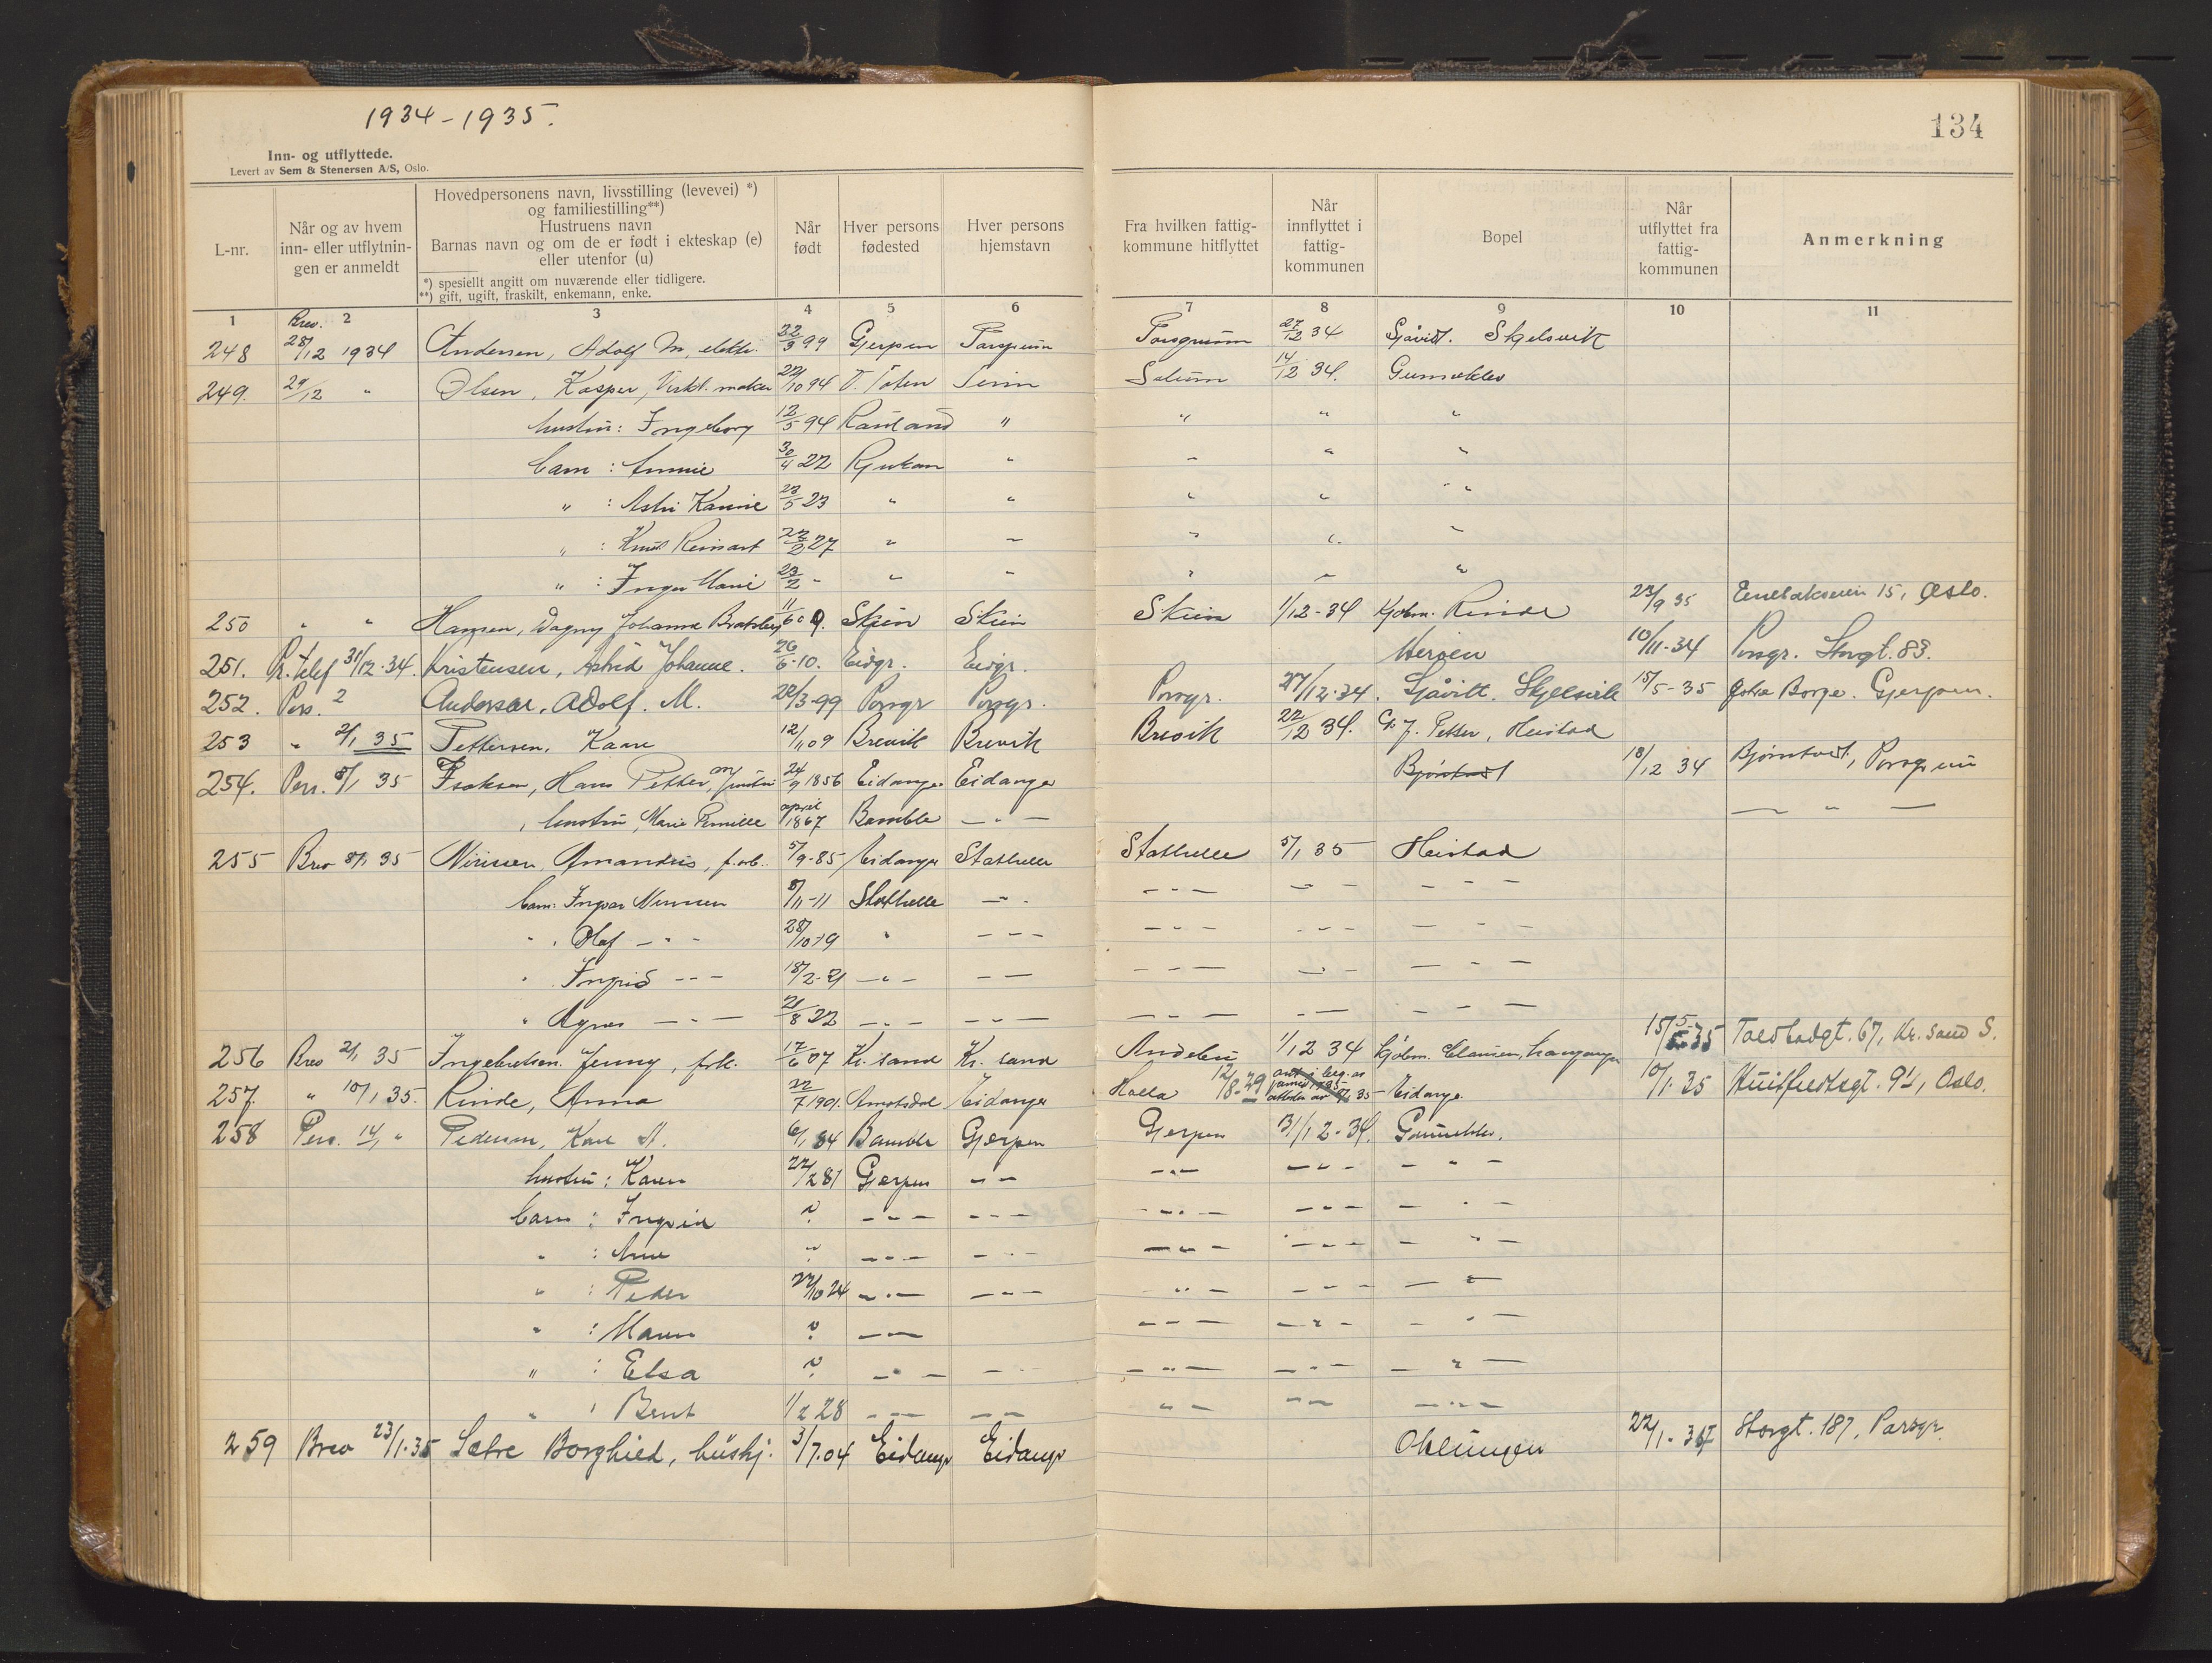 1934-1935.
134
Inn- og utflyttede.
Levert av Sem & Stenersen A/S, Oslo.
L-nr. | Når og av hvem inn- eller utflytnin- gen er anmeldt | Hovedpersonens navn, livsstilling (levevei) *) og familiestilling**) Hustruens navn Barnas navn og om de er født i ekteskap (e) eller utenfor (u) | Når født | Hver persons fødested | Hver persons hjemstavn | Fra hvilken fattig- kommune hitflyttet | Når innflyttet i fattig- kommunen | Bopel | Når utflyttet fra fattig- kommunen | Anmerkning
*) spesiellt angitt om nuværende eller tidligere.
**) gift, ugift, fraskilt, enkemann, enke.
1 2 3 4 5 6 7 8 9 10 11
248 Brev. 28/12 1934 Andersen, Adolf M, elektr. 22/3 99 Gjerpen Porsgrunn Porsgrunn 27/12 34 Sjåvidt. Skjelsvik
249. 29/12 " Olsen, Kasper, Verkt. maker /10 94 V. Toten Solum 14/12 34. Gunneklev
hustru: Ingeborg 12/5 94 Rauland " " " "
barn : Annie 30/4 22 Rjukan " " " "
" : Astri Karine 23/5 23 " " " " "
" : Knut Reinart 22/2 27 " " " " "
" : Inger Marie 23/2 " " " " " "
250 " " Hansen, Dagny Johanne Bratsberg 11/6 09. Skien Skien Skien 1/12-34 Kjøbm. Rinde 23/9 35 15, Oslo.
251. Pr. telef 31/12-34. Kristensen, Astrid Johanne. 26/6-10. Eidgr. Eidgr. Herøen 10/11-34 Porsgr. Storgt. 83.
252. Pers. 2 Andersen, Adolf. M. 22/3-99 Porsgr Porsgr. Porsgr. 27/12-34. Sjåvitt. Skjelsvik 15/5-35 Borge. Gjerpen.
253 " 2/1 35 Pettersen, Kaare 12/11 09 Brevik Brevik Brevik 22/12 34. J. Petter, Heistad
254. Pers. 8/1 35 Isaksen, Hans Petter, 24/9 1856 Eidanger Eidanger Bjørntvedt 18/12 34 Bjørntvedt, Porsgrunn
, hustru, Marie Pernille april 1867 Bamble — " — — " —
255 Brev 8/1 35 Nirisen Amandus, f.arb. 5/9-85 Eidanger Stathelle Stathelle 5/1 35 Heistad
barn: Ingvar Nirisen 8/11-11 Stathelle — " — — " — — " — — " —
" . Olaf — " — 28/10-19 " — " — — " — — " — — " —
" Ingrid — " — 18/2-21 — " — — " — — " — — " — — " —
" Agnes — " — 21/8 22 — " — — " — — " — — " — — " —
256 Brev 2/1 35 Ingebretsen. Jenny, frk. 17/6 07 Kr. sand Kr. sand Andebu 1/12 34 Kjøbm. Clausen, 15/5-35 Toldbodgt. 67, Kr. sand S.
257. " 10/1 35. Rinde, Anna 22/7 1901. Amotsdal Eidanger Holla 12/8-29 Eidanger 10/1-35 Huitfeldtsgt. 91, Oslo.
258 Pers. 14/1 " Pedersen, Karl A. 6/1 84 Bamble Gjerpen Gjerpen 31/12-34. Gunneklev.
hustru: Karen 22/2 81 Gjerpen — " — — " — — " — — " —
barn : Ingrid ? — " — — " — — " — — " — — " —
" : Arne " — " — — " — — " — — " — — " —
" : Peder 27/10 24 — " — — " — — " — — " — — " —
" : Maren ? — " — — " — — " — — " —
" : Elsa ? — " — — " — — " — — " — — " —
" : Bent 1/2 28 — " — — " — — " — — " — — " —
259 Brev 23/1-35 Sætre Borghild, hushj. 3/7.04 Eidanger Eidanger Oklungen 22/1-35 Storgt. 187, Porsgr.